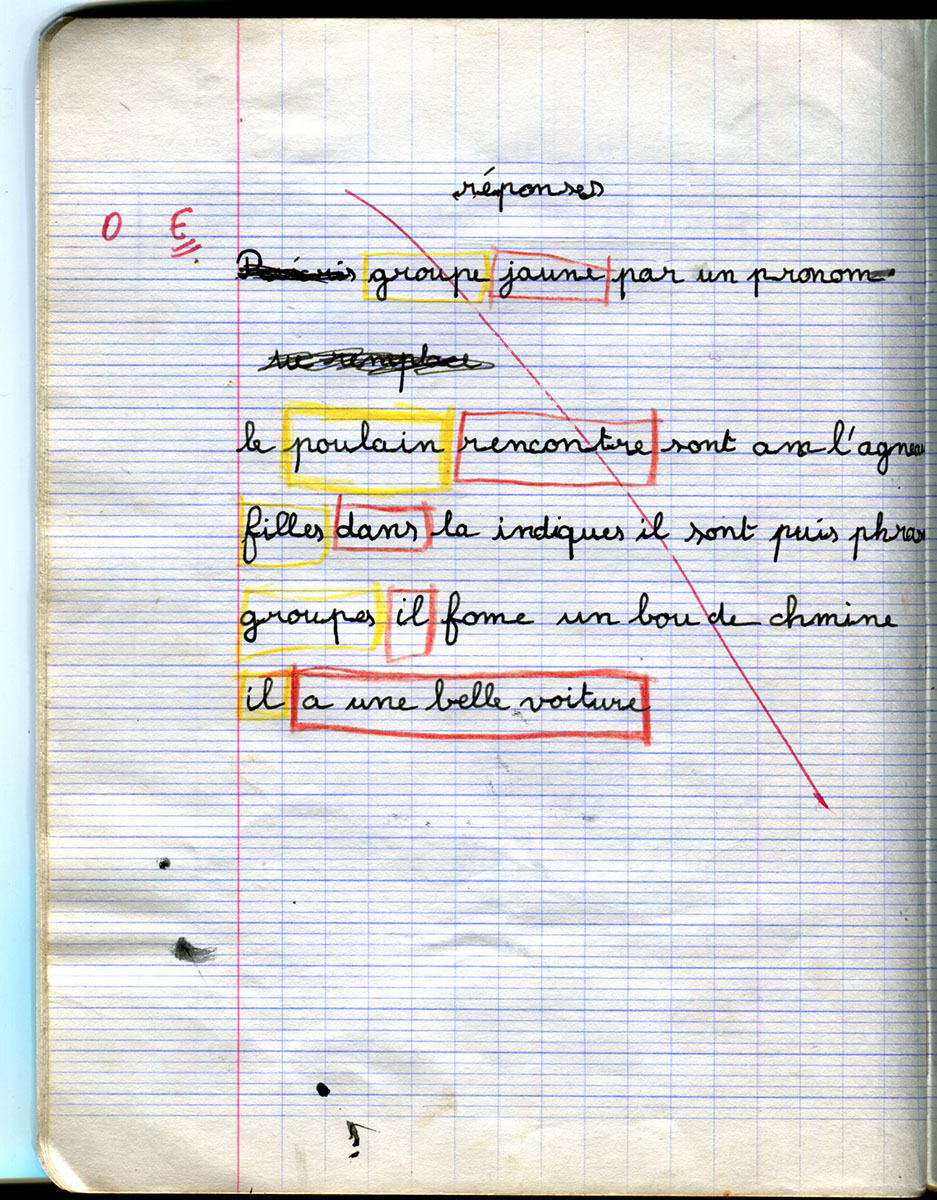 réponses
O E
groupe jaune par un pronom
le poulain rencontre sont am l'agneau
filles dans la indiques il sont puis phras
groupes il fome un bou de chmine
il a une belle voiture